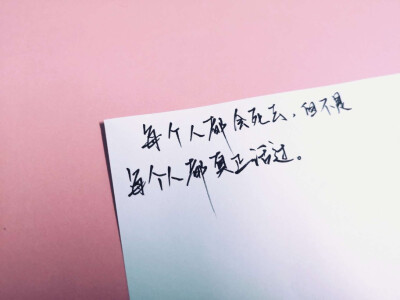 每个人都会死去，但不是
每个人都真正活过。